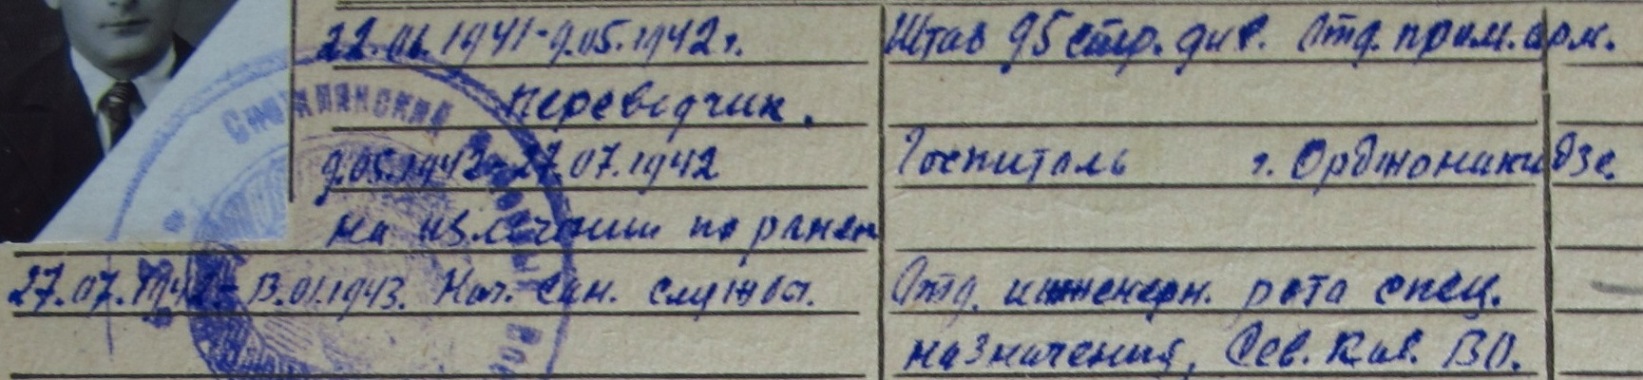 22.06.1941-9.05.1942г. Штаб 95 стр. див. Отд. прим. арм.
переводчик.
9.05.1942-27.07.1942 Госпиталь г. Орджоникидзе
на излечении по ранен
27.07.1942-13.01.1943. Нач. сан. службы. Отд. инженерн. рота спец.
назначения, Сев. Кав. ВО.